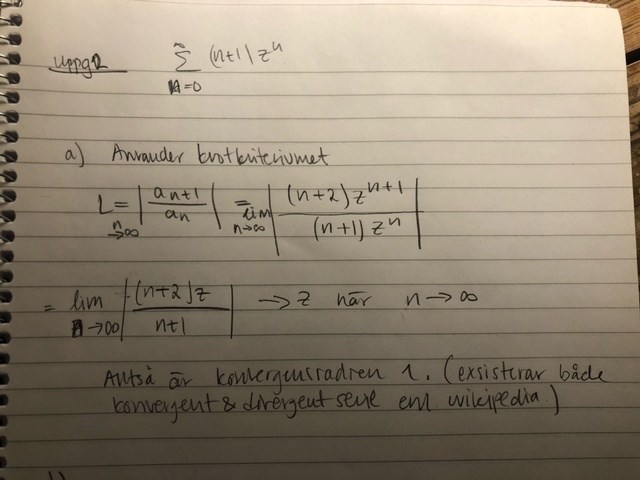 uppg 2 ∞ Σ n=0 (n+1) zⁿ
a) Använder kvotkriteriumet
L = n→∞ | aₙ₊₁ / aₙ | = lim n→∞ | (n+2) zⁿ⁺¹ / (n+1) zⁿ |
= lim n→∞ | (n+2) z / n+1 | → z när n → ∞
Alltså är konvergensradien 1. (exsisterar både
konvergent & divergent serie enl wikipedia)